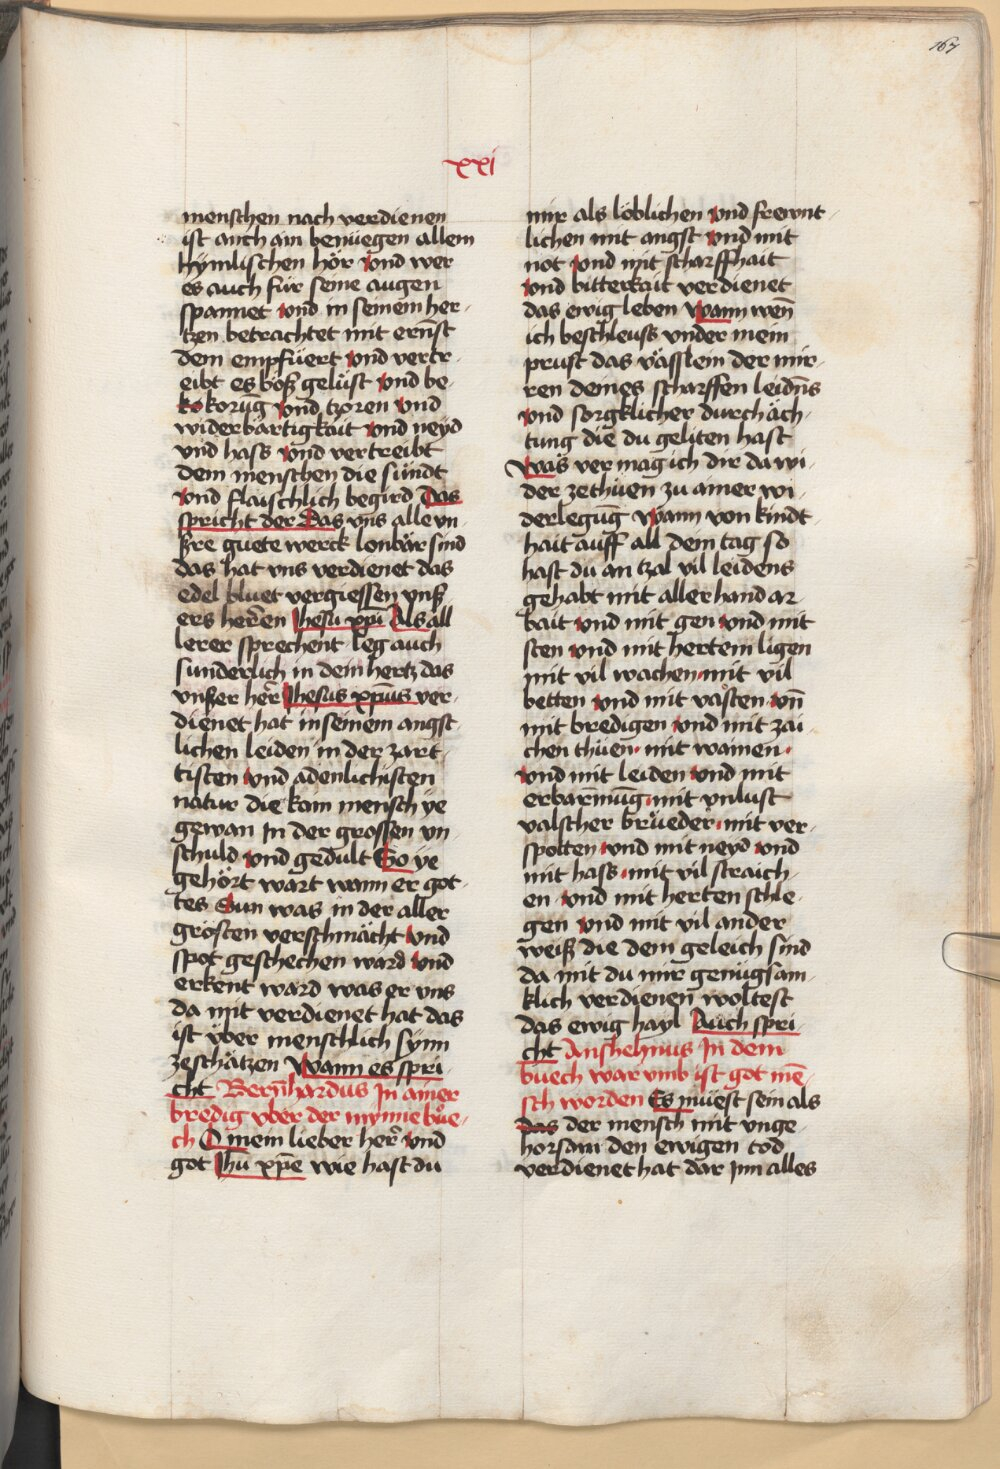 167
xxi
menschen nach verdienen
ist auch ain benüegen allem
hymlischen hör vnd wer
es auch für seine augen
spannet vnd in seinem her-
tzen betrachtet mit ernst
dem empfüert vnd vertr-
eibt es böß gelüst vnd be-
kokorūg vnd tzoren vnd
widerbärtigkait vnd neyd
vnd hass vnd vertreibt
dem menschen die sündt
vnd flaischlich begird Das
spricht der Das vns alle vn-
ßre guete werck lonbär sind
das hat vns verdienet das
edel bluet vergiessen vnß
ers herren Jhesu xpī Als all
lerer sprechent leg auch
sunderlich in dem hertz das
vnßer her Jhesus xpūs ver-
dienet hat in seinem angst
lichen leiden in der zart
tisten vnd adenlichisten
natur die kain mensch ye
gewan In der grossen vn
schuld vnd gedult So ye
gehört wart wann er got-
tes Sun was in der aller
grösten verschmächt vnd
spot geschechen ward vnd
erkent ward was er vns
da mit verdienet hat das
ist vber menschlich synn
zeschätzen Wann es spri-
cht Bernhardus In ainer
bredig vber der mynne bue-
ch O mein lieber her vnd
got Jhu xpē wie hast du
mir als löblichen vnd frewnt
lichen mit angst vnd mit
not vnd mit scharffhait
vnd bitterkait verdienet
das ewig leben Wann wen̄
ich beschleuss vnder mein
prust das vässlein der mir-
ren deines scharffen leidn̄s
vnd sorgklicher durchäch-
tung die du geliten hast
Was vermag ich dir da wi-
der zethuen zu ainer wi-
derlegūg Wann von kindt
hait auff all dem tag so
hast du an tzal vil leidens
gehabt mit aller hand ar
bait vnd mit gen vnd mit
sten vnd mit hertem ligen
mit vil wachen mit vil
betten vnd mit vasten vn̄
mit bredigen vnd mit zai
chen thuen mit wainen
vnd mit leiden vnd mit
erbarmūg mit vnlust
valscher brüeder mit ver-
spotten vnd mit neyd vnd
mit hass mit vil straich-
en vnd mit herten schle-
gen vnd mit vil ander
weiß die dem geleich sind
da mit du mir genügsam-
klich verdienen woltest
das ewig hayl Auch spri-
cht Anshelmus In dem
buech warumb ist got mē-
sch worden Es müest sein als
das der mensch mit vnge-
horsam den ewigen tod
verdienet hat dar Inn alles